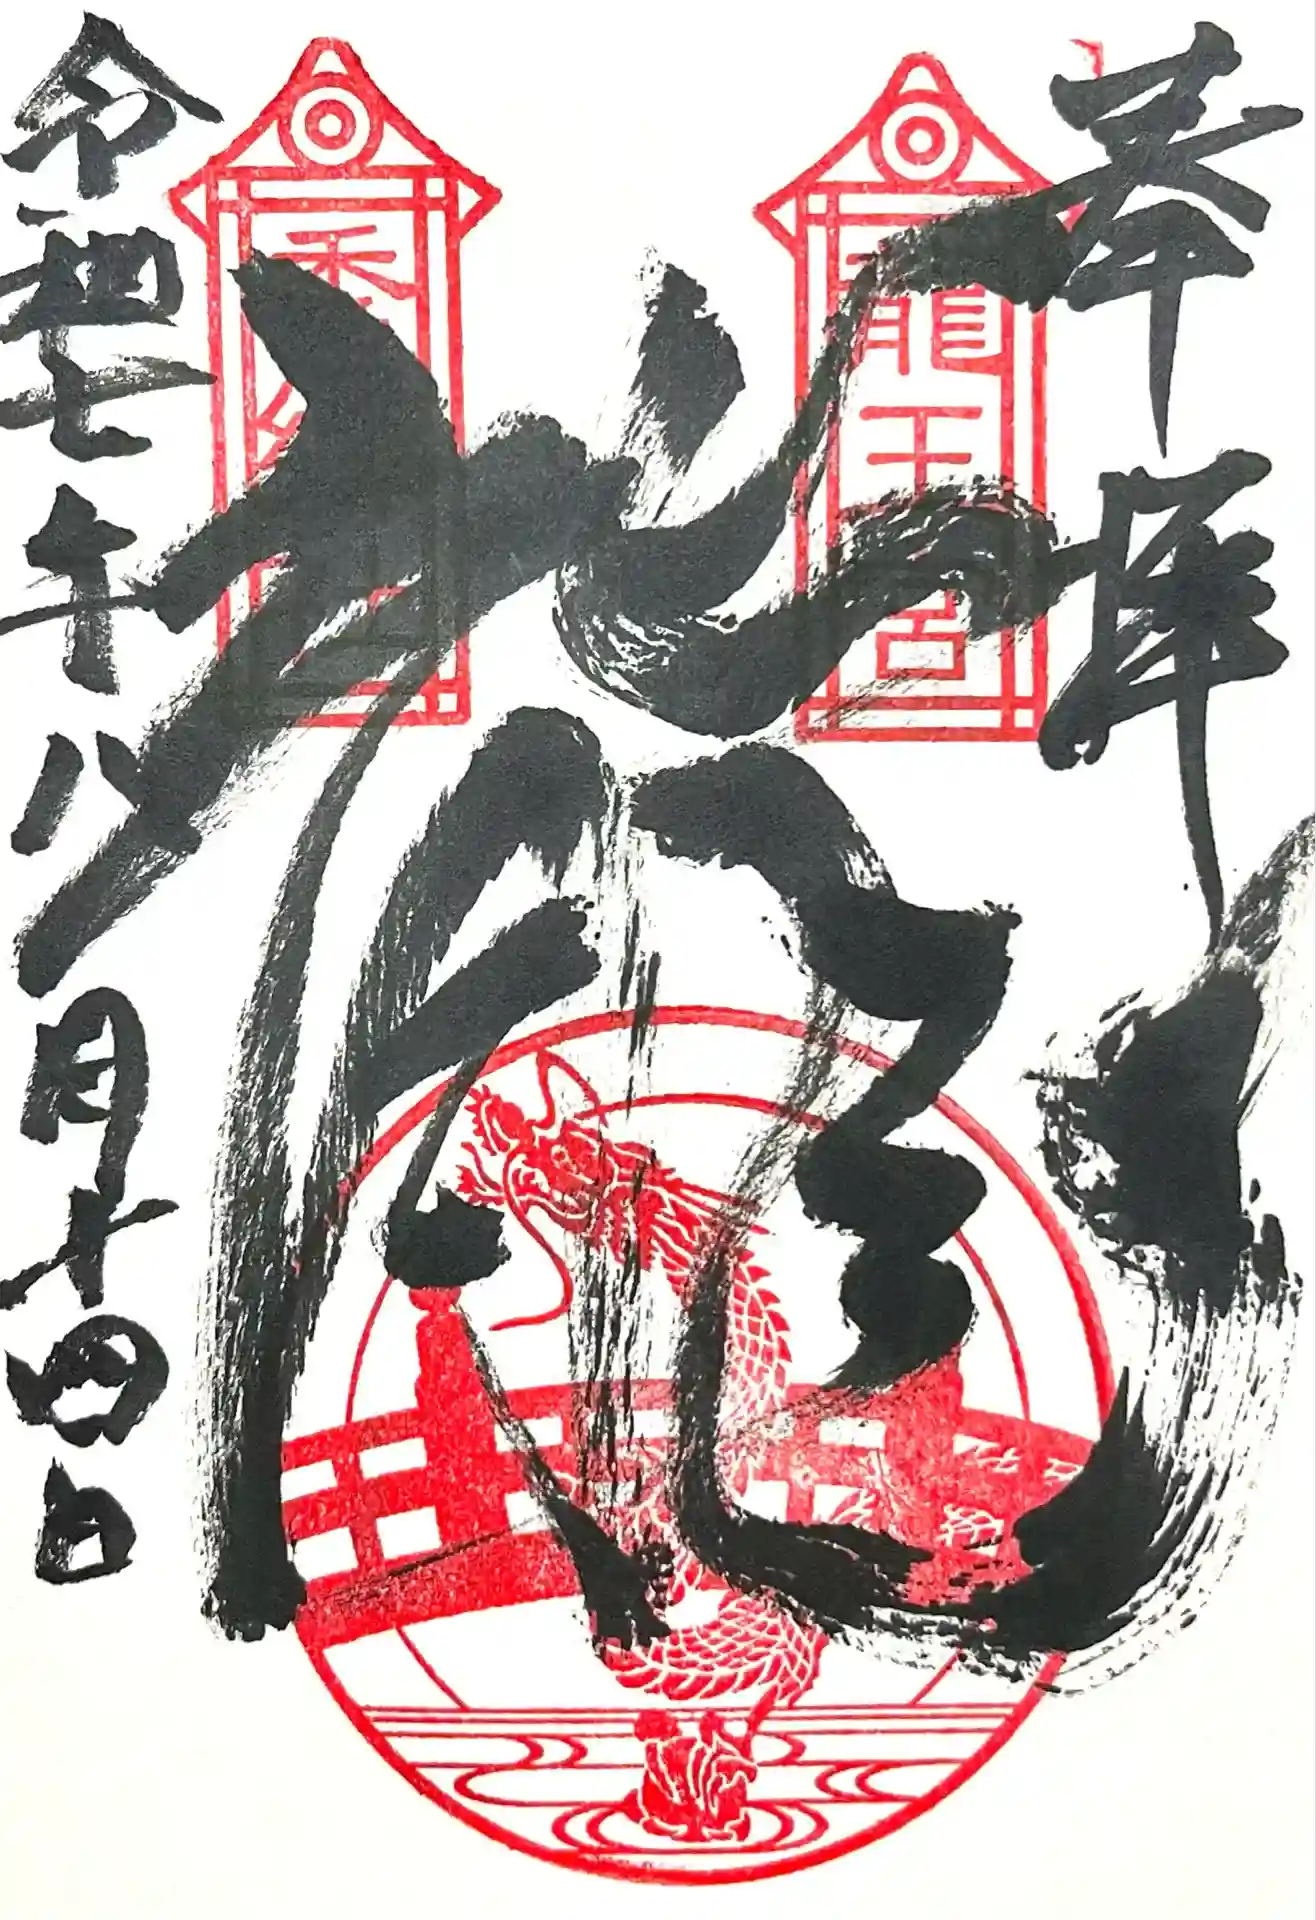 奉拝
龍
令和七年八月十四日
龍王宮
秀